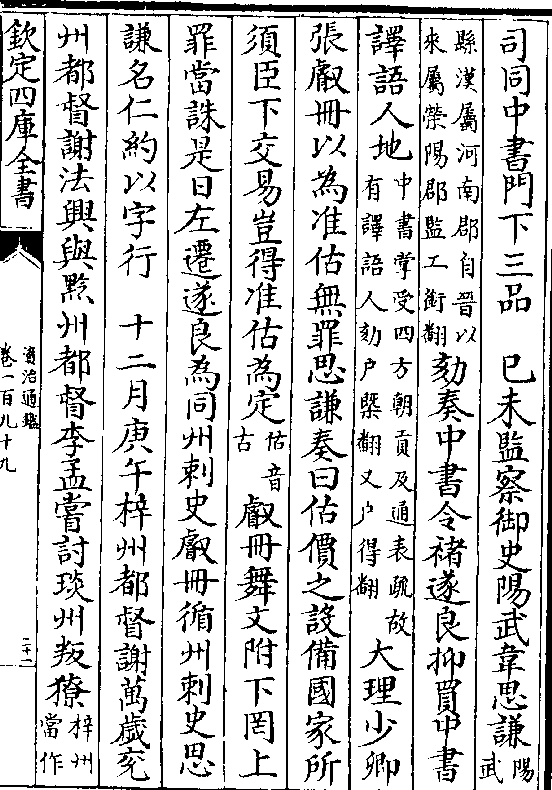 司同中書門下三品　已未監察御史陽武韋思謙陽武
縣漢屬河南郡自晉以來屬滎陽郡監工銜翻劾奏中書令褚遂良抑買中書
譯語人地中書掌受四方朝貢及通表疏故有譯語人劾户槩翻又户得翻大理少卿
張叡冊以為准估無罪思謙奏曰估價之設備國家所
須臣下交易豈得准估為定估音古叡冊舞文附下罔上
罪當誅是日左遷遂良為同州刺史叡冊循州刺史思
謙名仁約以字行　十二月庚午梓州都督謝萬歲兖
州都督謝法興與黔州都督李孟嘗討琰州叛獠梓州當作
欽定四庫全書
資治通鑑
卷一百九十九
二十一